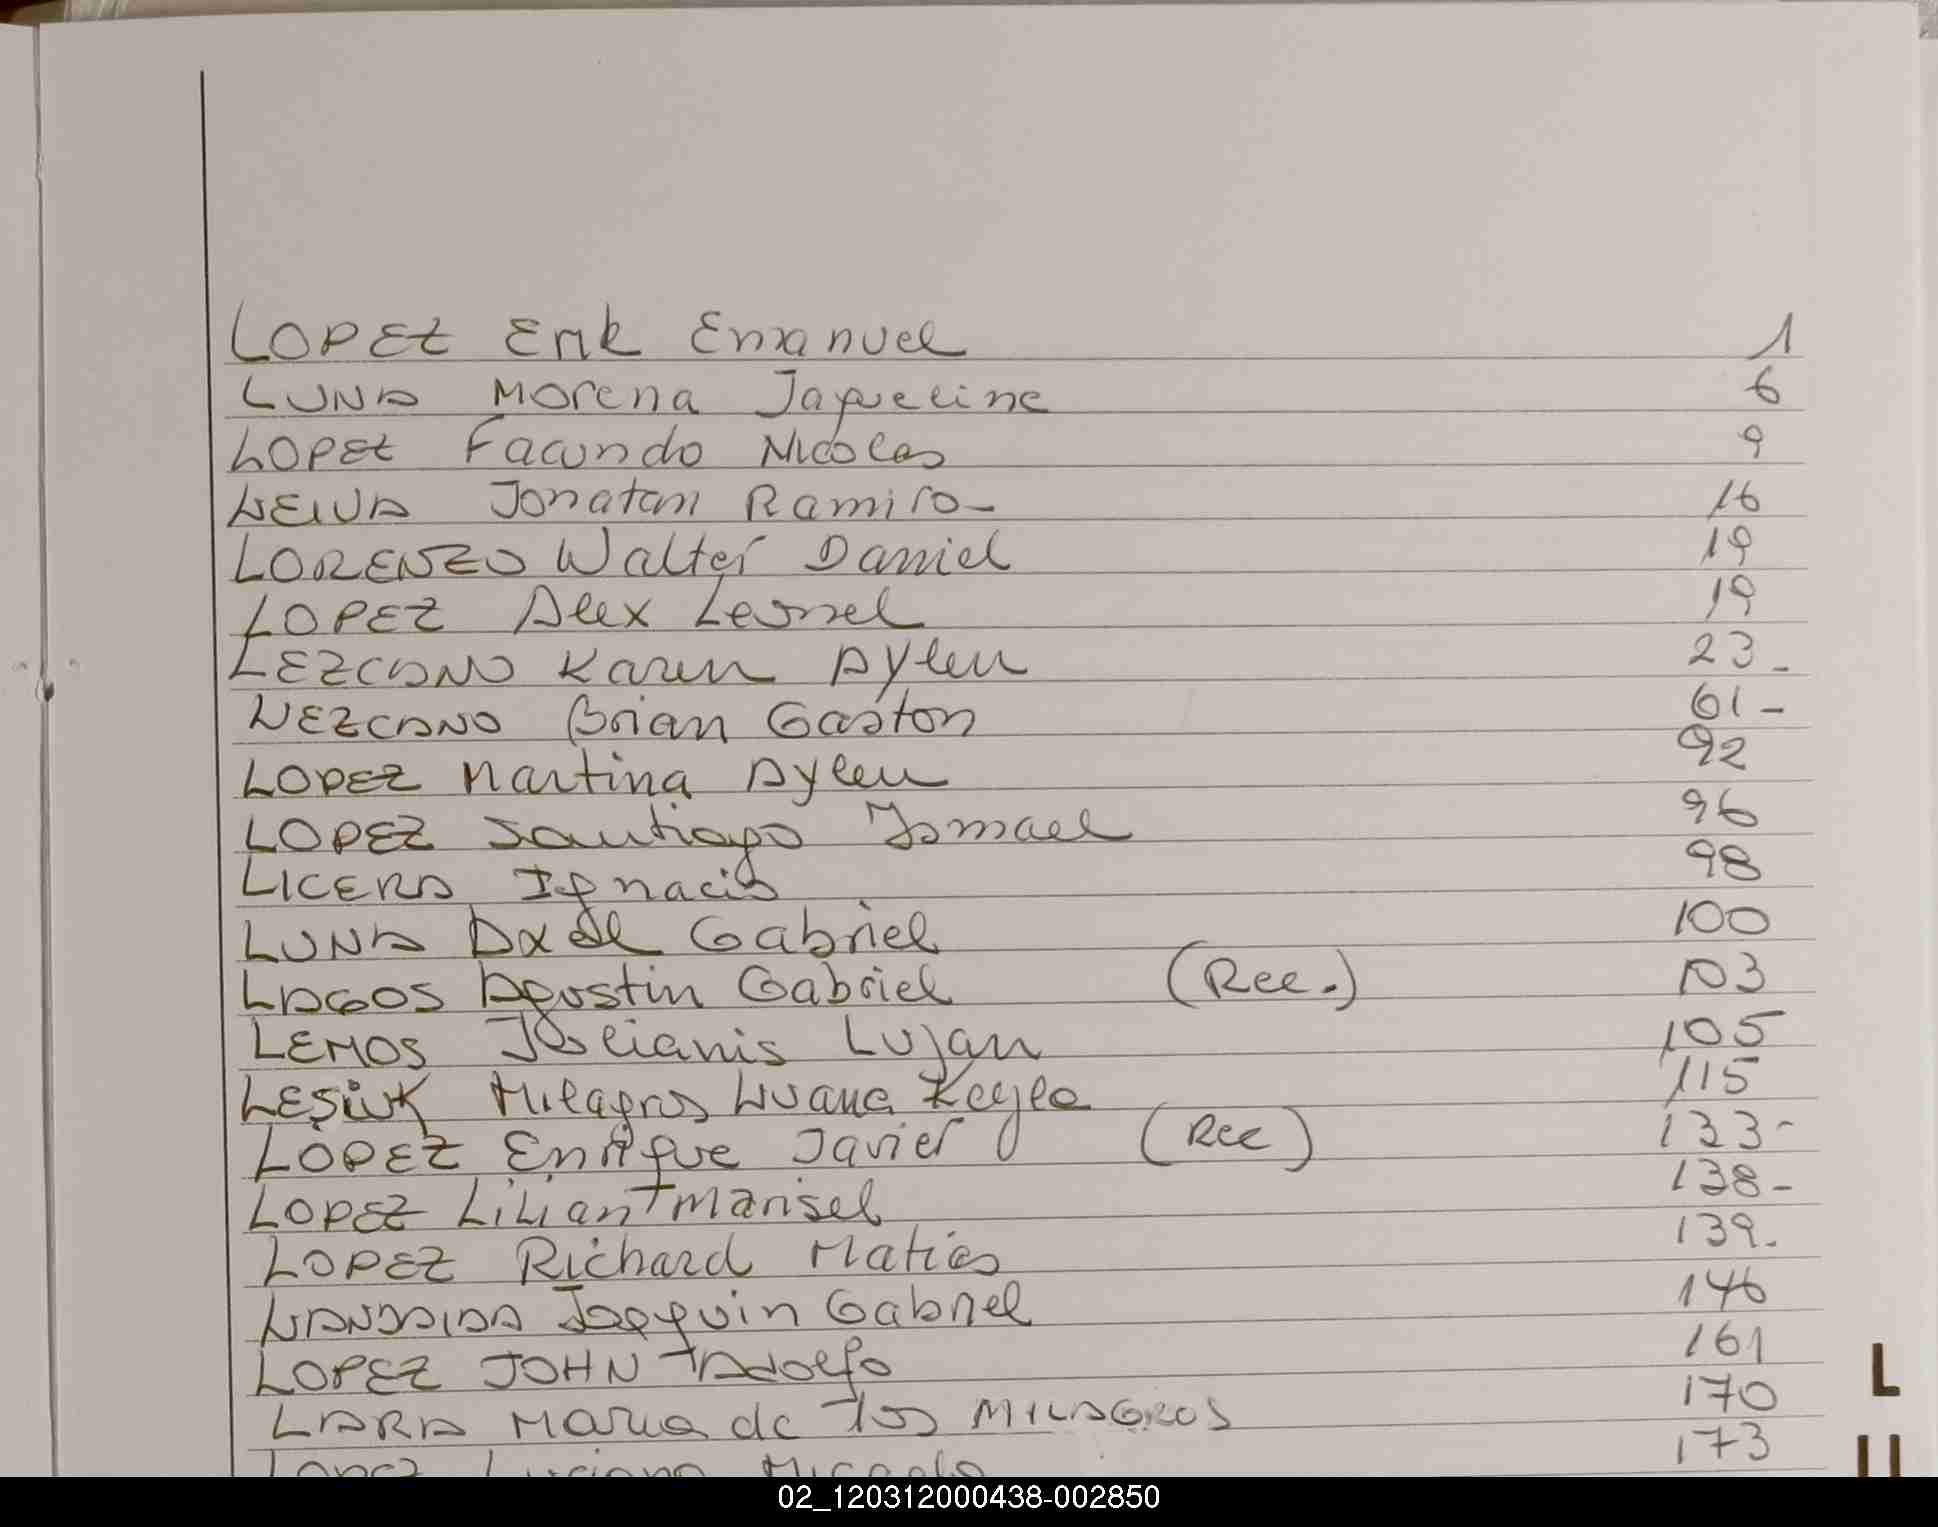 LOPEZ Erik Emanuel 1
LUNA Morena Jaqueline 6
LOPEZ Facundo Nicolas 9
LEIVA Jonatan Ramiro- 16
LORENZO Walter Daniel 19
LOPEZ Alex Leonel 19
LEZCANO Karen Aylen 23-
LEZCANO Brian Gaston 61-
LOPEZ Martina Aylen 92
LOPEZ Santiago Ismael 96
LICERA Ignacio 98
LUNA Axel Gabriel 100
LAGOS Agustin Gabriel (Rec.) 103
LEMOS Julianis Lujan 105
LESIUK Milagros Luana Keyla 115
LOPEZ Enrique Javier (Rec) 133-
LOPEZ Lilian Marisel 138-
LOPEZ Richard Matias 139.
LANDAIDA Joaquin Gabriel 146
LOPEZ JOHN Adolfo 161
LARA Maria de los MILAGROS 170
Lopez Luciana Micaela 173
L
LL
02_120312000438-002850